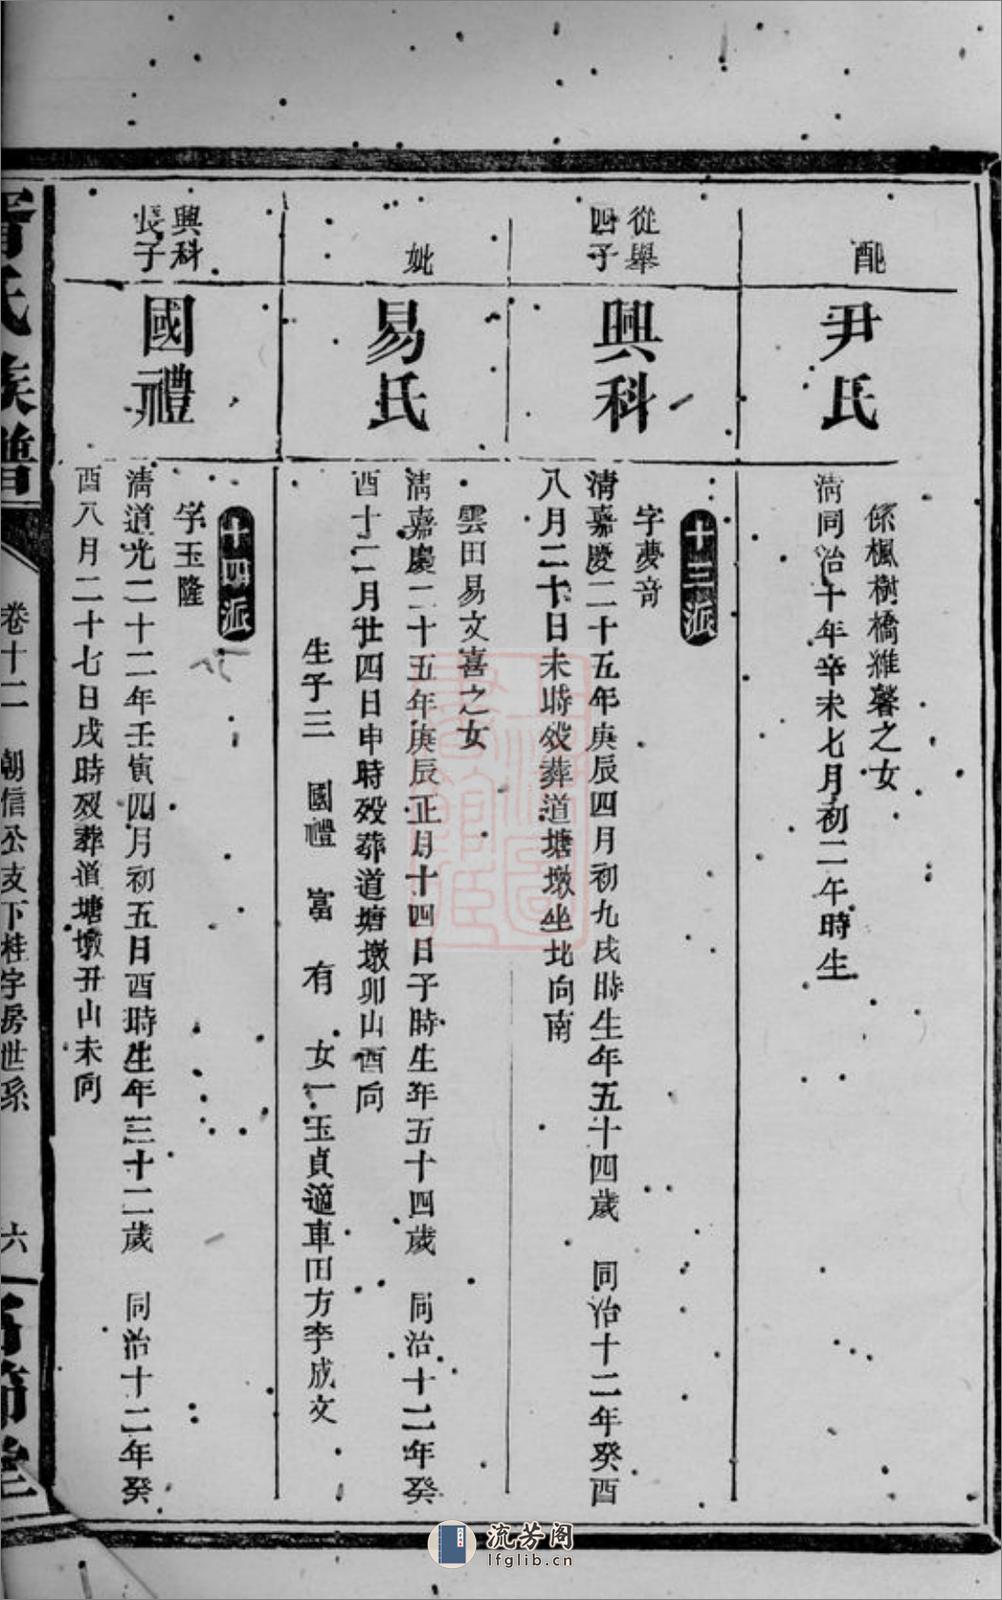 配
尹氏
係楓樹橋維馨之女
清同治十年辛未七月初二午時生
從舉
四子
興科
十三派
字夢音
清嘉慶二十五年庚辰四月初九戌時生年五十四歲 同治十二年癸酉
八月二十日未時歿葬道塘墩坐北向南
妣
易氏
雲田易文喜之女
清嘉慶二十五年庚辰正月十四日子時生年五十四歲 同治十二年癸
酉十二月廿四日申時歿葬道塘墩卯山酉向
生子三 國禮 富 有 女一玉貞適車田方李成文
興科
長子
國禮
十四派
字玉隆
清道光二十二年壬寅四月初五日酉時生年三十二歲 同治十二年癸
酉八月二十七日戌時歿葬道塘墩丑山未向
氏族譜
卷十二 朝信公支下桂字房世系 六
流芳阁
lfglib.cn